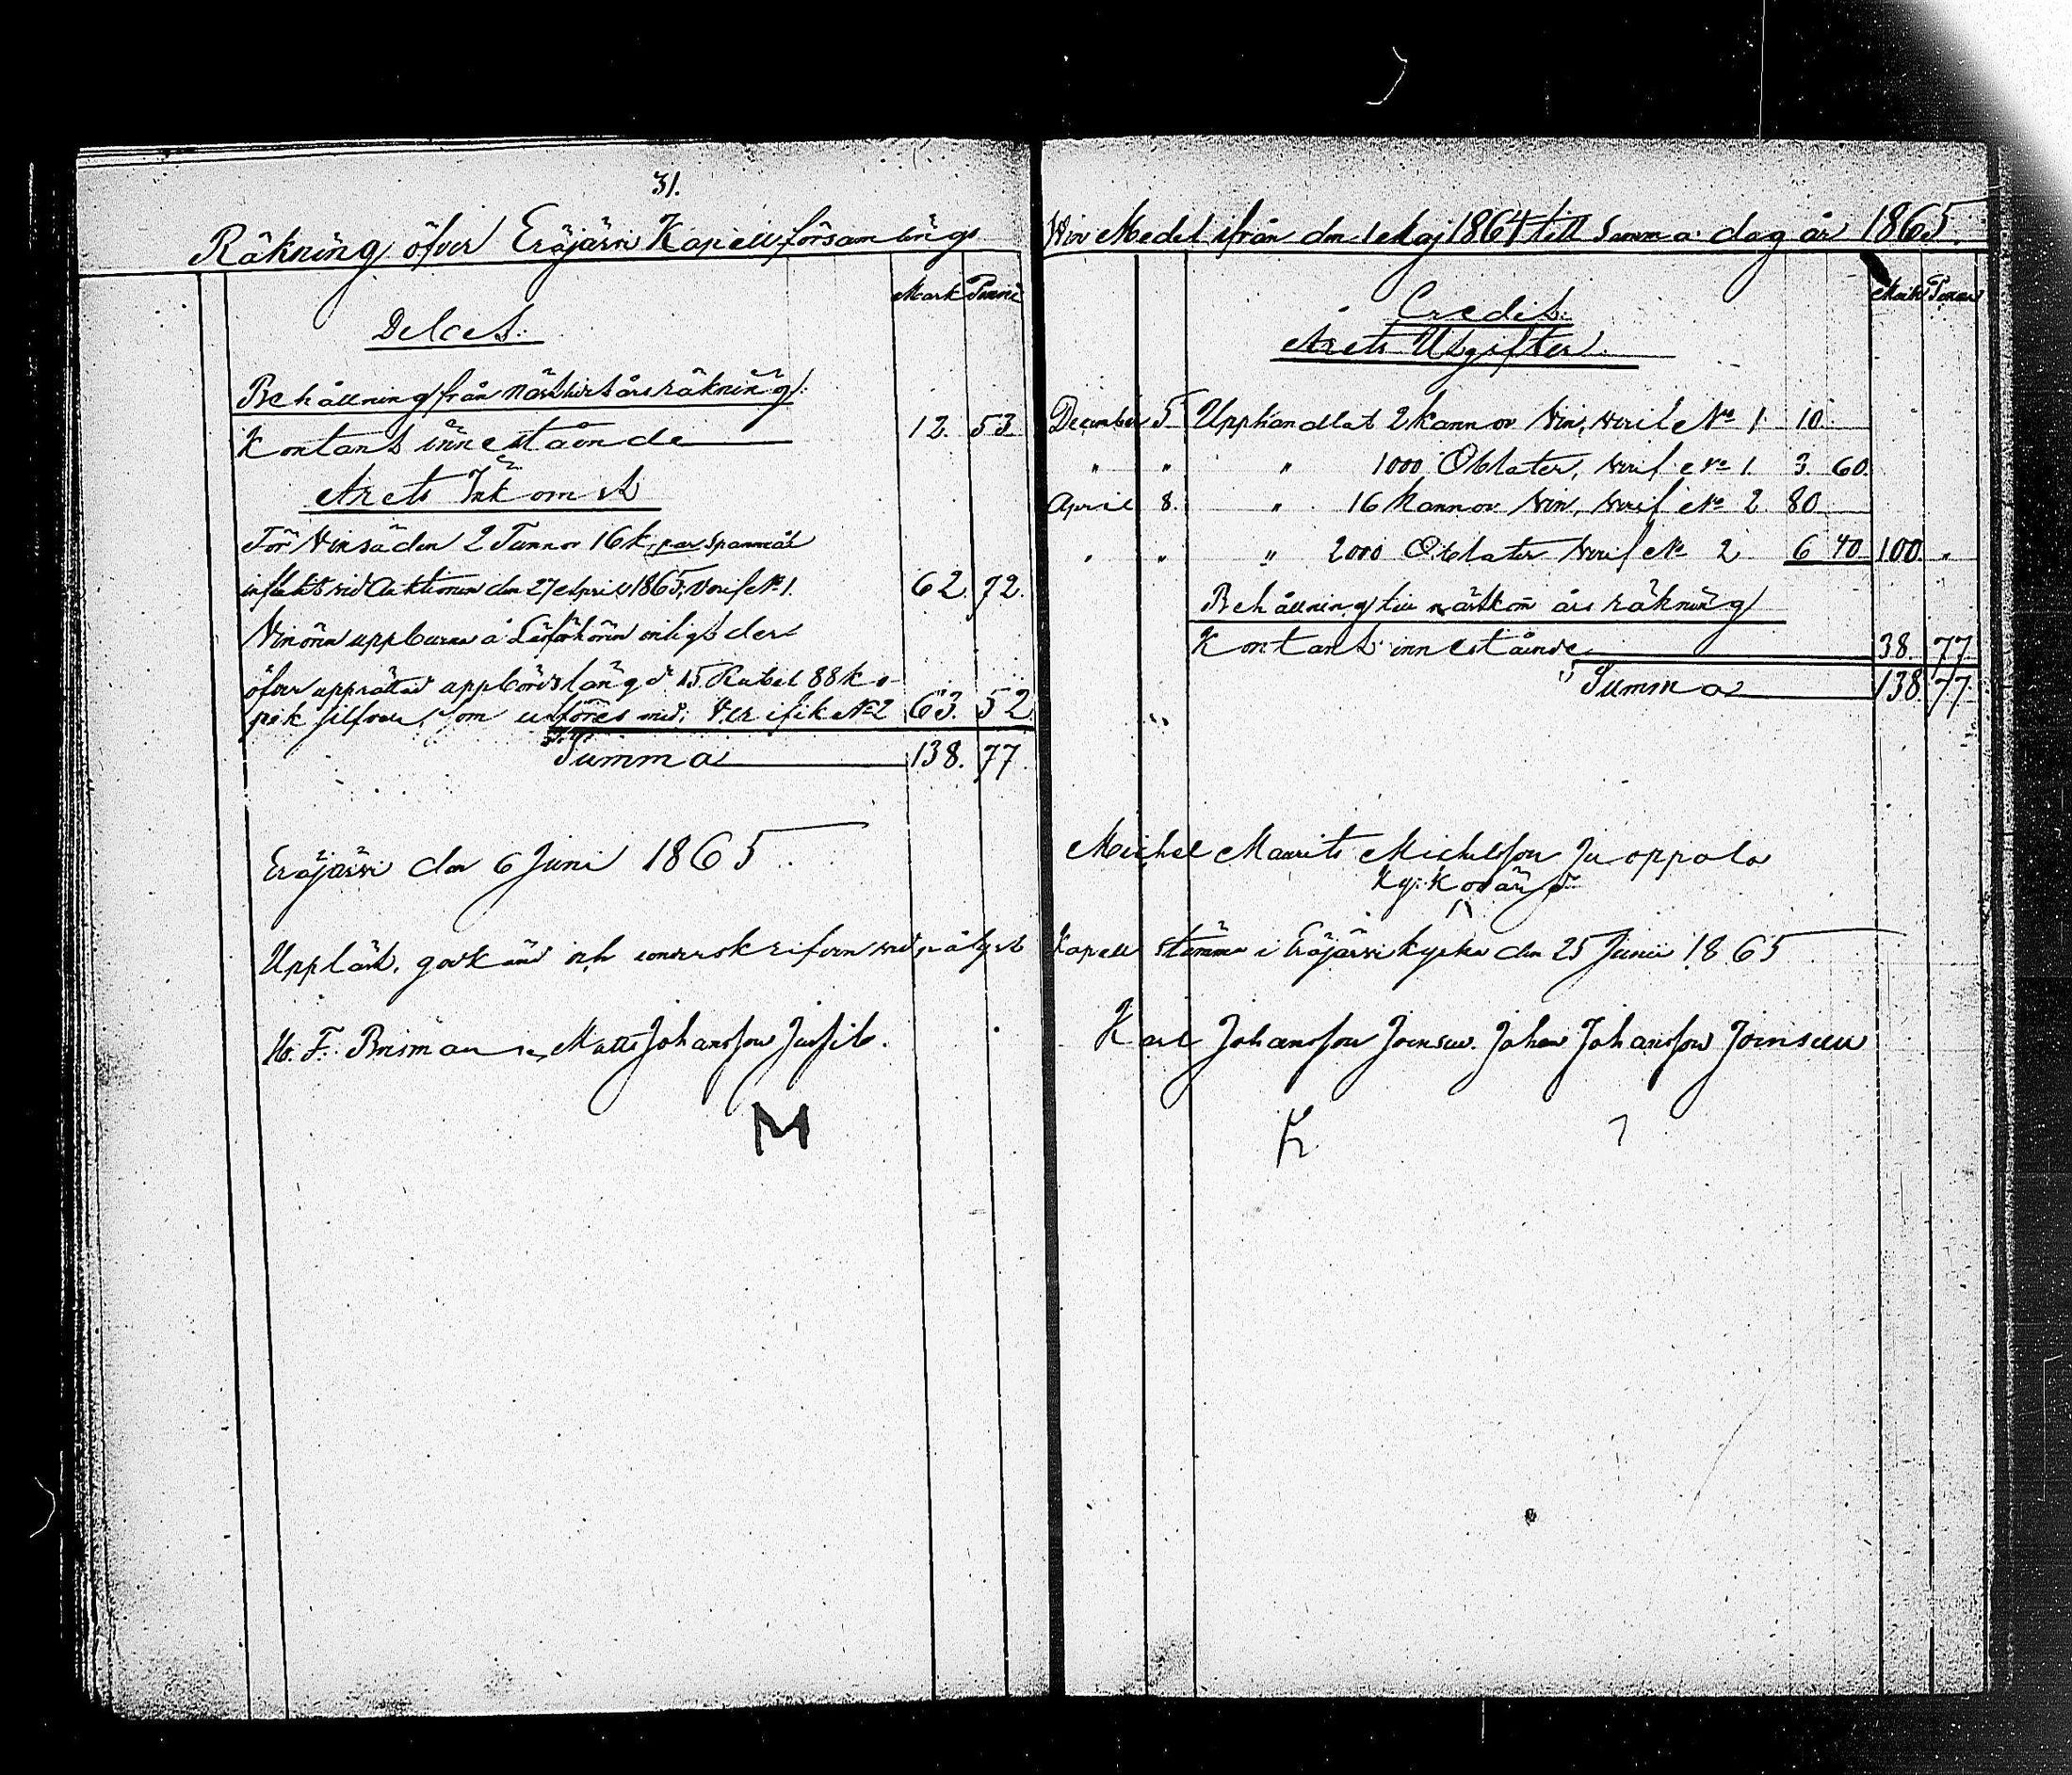 31.
Räkning öfver Eräjärvi Kapellförsamlings
Mark Penni
Debet.
Behållning från näst sistårsräkning.
Kontant innestående 12. 53
Årets Inkomst
För Vinsäden 2 Tunnor 16 k, par Spannmål
influtit vid Auktionen den 27 April 1865, Verif No 1. 62. 72.
Vinören uppburna å Läsförhören enligt der
öfver upprättad uppbördslängd 15 Rubel 88 ko-
pek silfver, som utföres med; Verifik No 2 63. 52.
Summa 138. 77.
Eräjärvi den 6 Juni 1865
Uppläst, godkänd och underskrifven vid pålyst
Matts Johansson Jussila.
M
Vin Medel ifrån den 1 Maj 1864 till Samma dag år 1865.
Mark Penni
Credit.
Årets Utgifter.
December 5 Upphandlat 2 kannor Vin, Verif No 1. 10.
" " " 1000 Oblater, Verif No 1. 3. 60.
April 8. " 16 Kannor Vin, Verif No 2. 80
" " " 2000 Oblater Verif No 2 6 40 100. "
Behållning till nästkom års räkning
Kontant innestående 38. 77.
Summa 138. 77.
Michel Maurits Michelsson Juoppala
Kyrkovärd
Kapell stämma i Eräjärvi kyrka den 25 Junii 1865
Karl Johansson Joensuu. Johan Johansson Joensuu
K